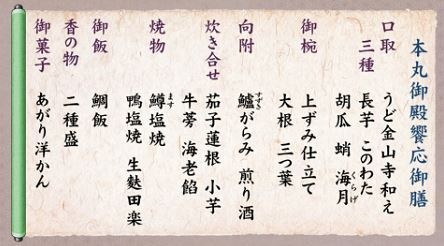 本丸御殿饗応御膳
口取 うど金山寺和え
三種 長芋 このわた
胡瓜 蛸 海月
くらげ
御椀 上ずみ仕立て
大根 三つ葉
向附 鱸がらみ 煎り酒
すずき
炊き合せ 茄子蓮根 小芋
牛蒡 海老餡
焼物 鱒塩焼
ます
鴨塩焼 生麩田楽
御飯 鯛飯
香の物 二種盛
御菓子 あがり洋かん